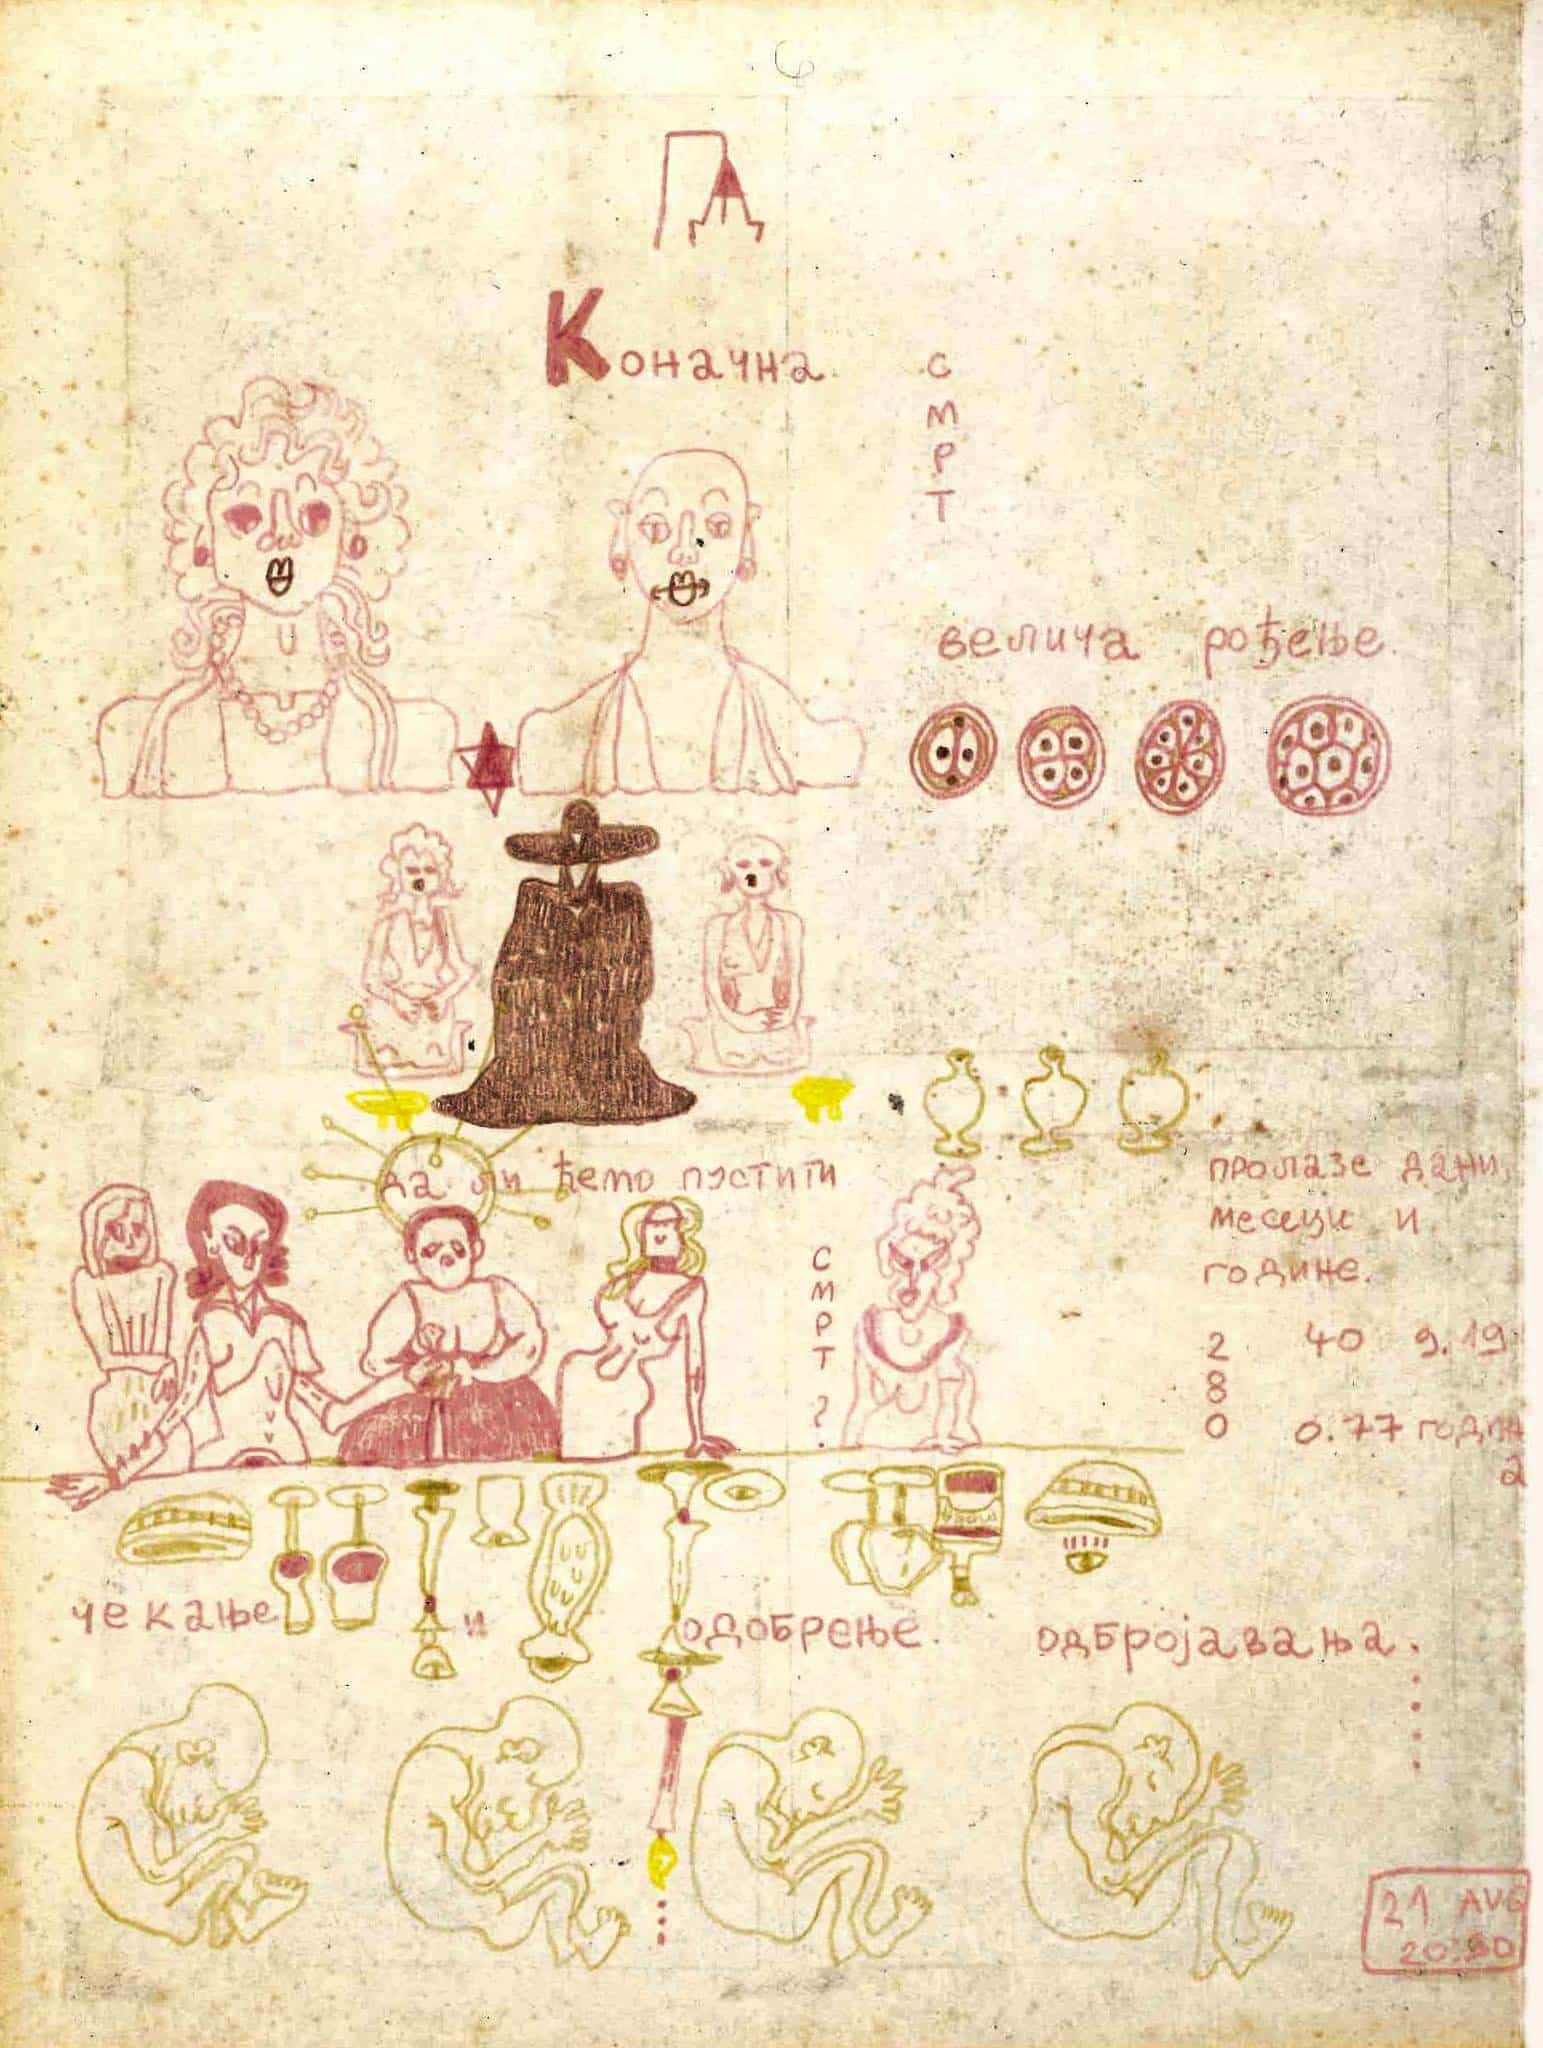 Коначна
СМРТ
велича рођење.
да ли ћемо пустити
СМРТ?
пролазе дани,
месеци и
године.
280 40 9.19
0.77 година
чекање и одобрење. одбројавања.
21 AUG